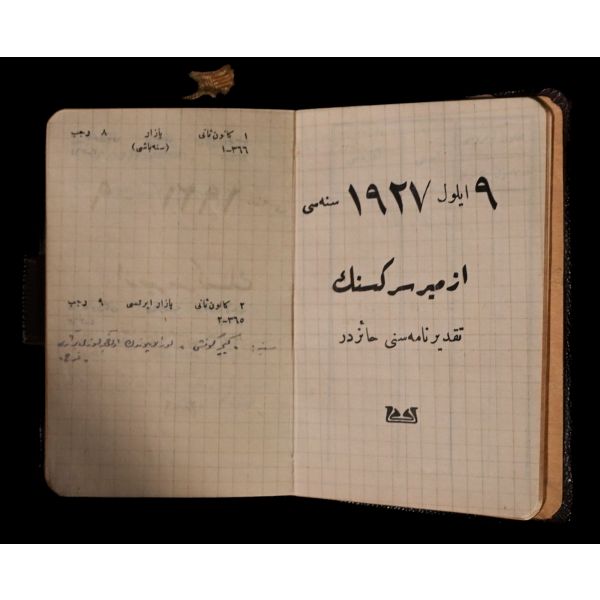 ٩ ايلول ١٩٢٧ سنه‌سى
ازمير سركسنك
تقديرنامه‌سنى حائزدر
١ كانون ثانى بازار ٨ رجب
١-٣٦٦ (سنه‌باشى)
٢ كانون ثانى بازار ايرتسى ٩ رجب
٢-٣٦٥